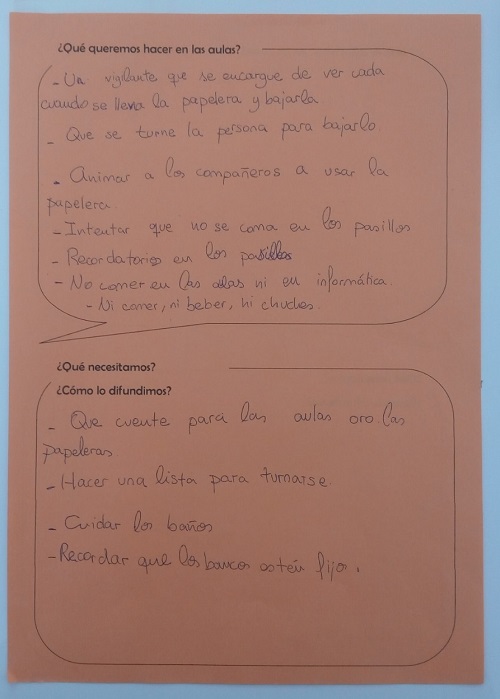 ¿Qué queremos hacer en las aulas?
- Un vigilante que se encargue de ver cada
cuando se llena la papelera y bajarla
- Que se turne la persona para bajarlo
- Animar a los compañeros a usar la
papelera.
- Intentar que no se coma en los pasillos
- Recordatorios en los pasillos
- No comer en las aulas ni en informática.
- Ni comer, ni beber, ni chuches.
¿Qué necesitamos?
¿Cómo lo difundimos?
- Que cuente para las aulas oro las
papeleras
- Hacer una lista para turnarse.
- Cuidar los baños
- Recordar que los bancos estén fijos.